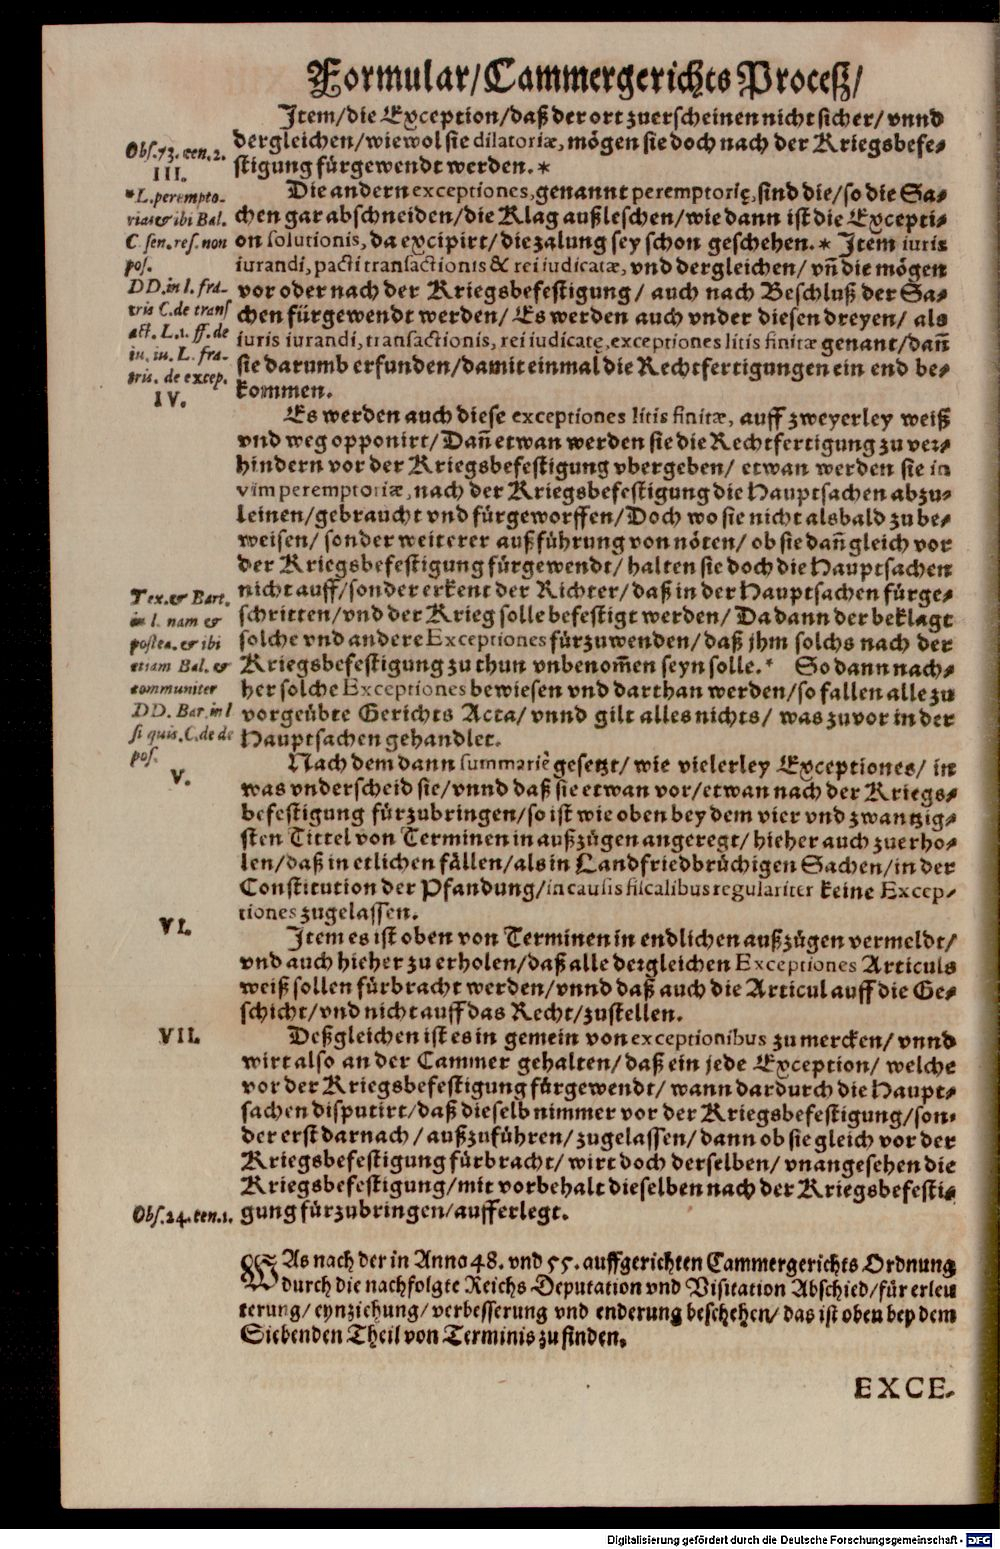 Formular/Cammergerichts Proceß/
Item/die Exception/daß der ort zuerscheinen nicht sicher/ vnnd
dergleichen/wiewol sie dilatoriæ, mögen sie doch nach der Kriegsbefe-
stigung fürgewendt werden.*
Obs.73.cen.2.
III.
Die andern exceptiones,genannt peremptorię,sind die/so die Sa-
chen gar abschneiden/die Klag außleschen/wie dann ist die Excepti-
on solutionis, da excipirt/die zalung sey schon geschehen.* Item iuris
iurandi, pacti transactionis & rei iudicatæ, vnd dergleichen/ vñ die mögen
vor oder nach der Kriegsbefestigung/ auch nach Beschluß der Sa-
chen fürgewendt werden/ Es werden auch vnder diesen dreyen/ als
iuris iurandi, transactionis, rei iudicatę,exceptiones litis finitæ genant/dañ
sie darumb erfunden/damit einmal die Rechtfertigungen ein end be-
kommen.
*L.perempto-
rias & ibi Bal.
C. sen.res.non
pos.
DD.in l. fra-
tris C.de trans
act. L.1. ff.de
iu. iu. L. fra-
tris. de excep.
IV.
Es werden auch diese exceptiones litis finitæ, auff zweyerley weiß
vnd weg opponirt/ Dañ etwan werden sie die Rechtfertigung zu ver-
hindern vor der Kriegsbefestigung vbergeben/ etwan werden sie in
vim peremptoriæ, nach der Kriegsbefestigung die Hauptsachen abzu-
leinen/gebraucht vnd fürgeworffen/Doch wo sie nicht alsbald zu be-
weisen/ sonder weiterer außführung von nöten/ ob sie dañ gleich vor
der Kriegsbefestigung fürgewendt/ halten sie doch die Hauptsachen
nicht auff/sonder erkent der Richter/daß in der Hauptsachen fürge-
schritten/vnd der Krieg solle befestigt werden/ Da dann der beklagt
solche vnd andere Exceptiones fürzuwenden/daß jhm solchs nach der
Kriegsbefestigung zu thun vnbenom̃en seyn solle.* So dann nach-
her solche Exceptiones bewiesen vnd darthan werden/so fallen alle zu
vorgeübte Gerichts Acta/ vnnd gilt alles nichts/ was zuvor in der
Hauptsachen gehandlet.
Tex.& Bart.
in l. nam &
postea.& ibi
etiam Bal. &
communiter
DD. Bar.in l
si quis.C.de de
pos.
V.
Nach dem dann summariè gesetzt/ wie vielerley Exceptiones/ in
was vnderscheid sie/vnnd daß sie etwan vor/etwan nach der Kriegs-
befestigung fürzubringen/so ist wie oben bey dem vier vnd zwantzig-
sten Tittel von Terminen in außzügen angeregt/ hieher auch zuerho-
len/daß in etlichen fällen/als in Landfriedbrüchigen Sachen/in der
Constitution der Pfandung/in causis fiscalibus regulariter keine Excep-
tiones zugelassen.
VI.
Item es ist oben von Terminen in endlichen außzügen vermeldt/
vnd auch hieher zu erholen/daß alle dergleichen Exceptiones Articuls
weiß sollen fürbracht werden/vnnd daß auch die Articul auff die Ge-
schicht/vnd nicht auff das Recht/zustellen.
VII.
Deßgleichen ist es in gemein von exceptionibus zu mercken/ vnnd
wirt also an der Cammer gehalten/ daß ein jede Exception/ welche
vor der Kriegsbefestigung fürgewendt/ wann dardurch die Haupt-
sachen disputirt/daß dieselb nimmer vor der Kriegsbefestigung/son-
der erst darnach/ außzuführen/zugelassen/dann ob sie gleich vor der
Kriegsbefestigung fürbracht/ wirt doch derselben/ vnangesehen die
Kriegsbefestigung/mit vorbehalt dieselben nach der Kriegsbefesti-
gung fürzubringen/aufferlegt.
Obs.24.cen.1.
WAs nach der in Anno 48. vnd 55. auffgerichten Cammergerichts Ordnung
durch die nachfolgte Reichs Deputation vnd Visitation Abschied/für erleu
terung/ eynziehung/ verbesserung vnd enderung beschehen/ das ist oben bey dem
Siebenden Theil von Terminis zu finden.
EXCE-
Digitalisierung gefördert durch die Deutsche Forschungsgemeinschaft - DFG